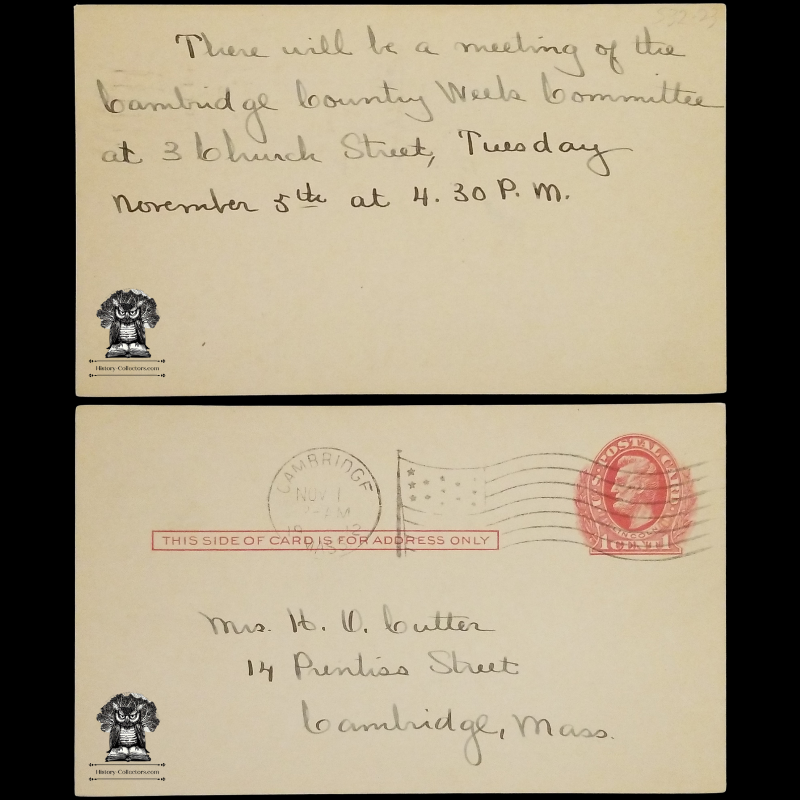 There will be a meeting of the
Cambridge Country Week Committee
at 3 Church Street, Tuesday
November 5th at 4.30 P.M.
History-Collectors.com
CAMBRIDGE
NOV 1
19 12
MASS
U.S. POSTAL CARD
LINCOLN
1 CENT 1
THIS SIDE OF CARD IS FOR ADDRESS ONLY
Mrs. H. D. Cutter
14 Prentiss Street
Cambridge, Mass.
History-Collectors.com